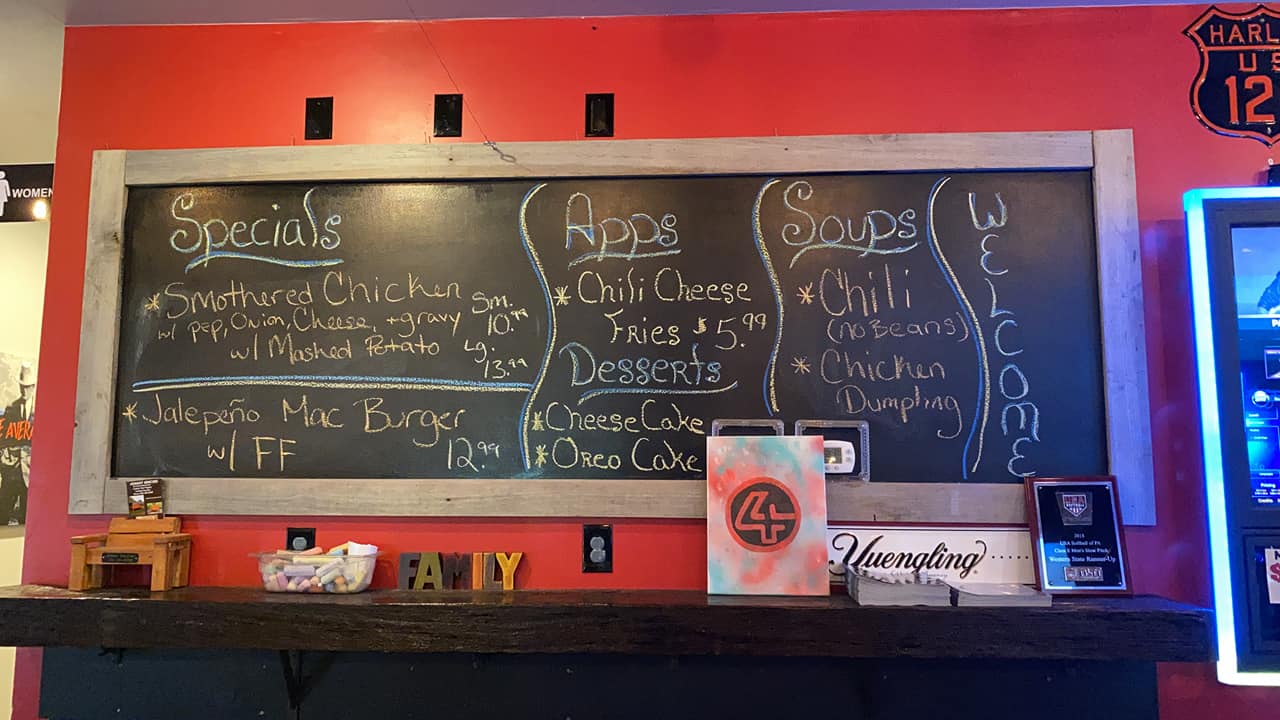 HARL
US
12
WOMEN
Specials
*Smothered Chicken Sm.
w/ pep, Onion, Cheese, +gravy 10.99
w/ Mashed Potato Lg.
13.99
*Jalepeño Mac Burger
w/ FF 12.99
Apps
*Chili Cheese
Fries $5.99
Desserts
*CheeseCake
*Oreo Cake
Soups
*Chili
(no Beans)
*Chicken
Dumpling
WELCOME
FAMILY
4
Yuengling
2018
USA Softball of PA
Class E Men's Slow Pitch
Western State Runner-Up